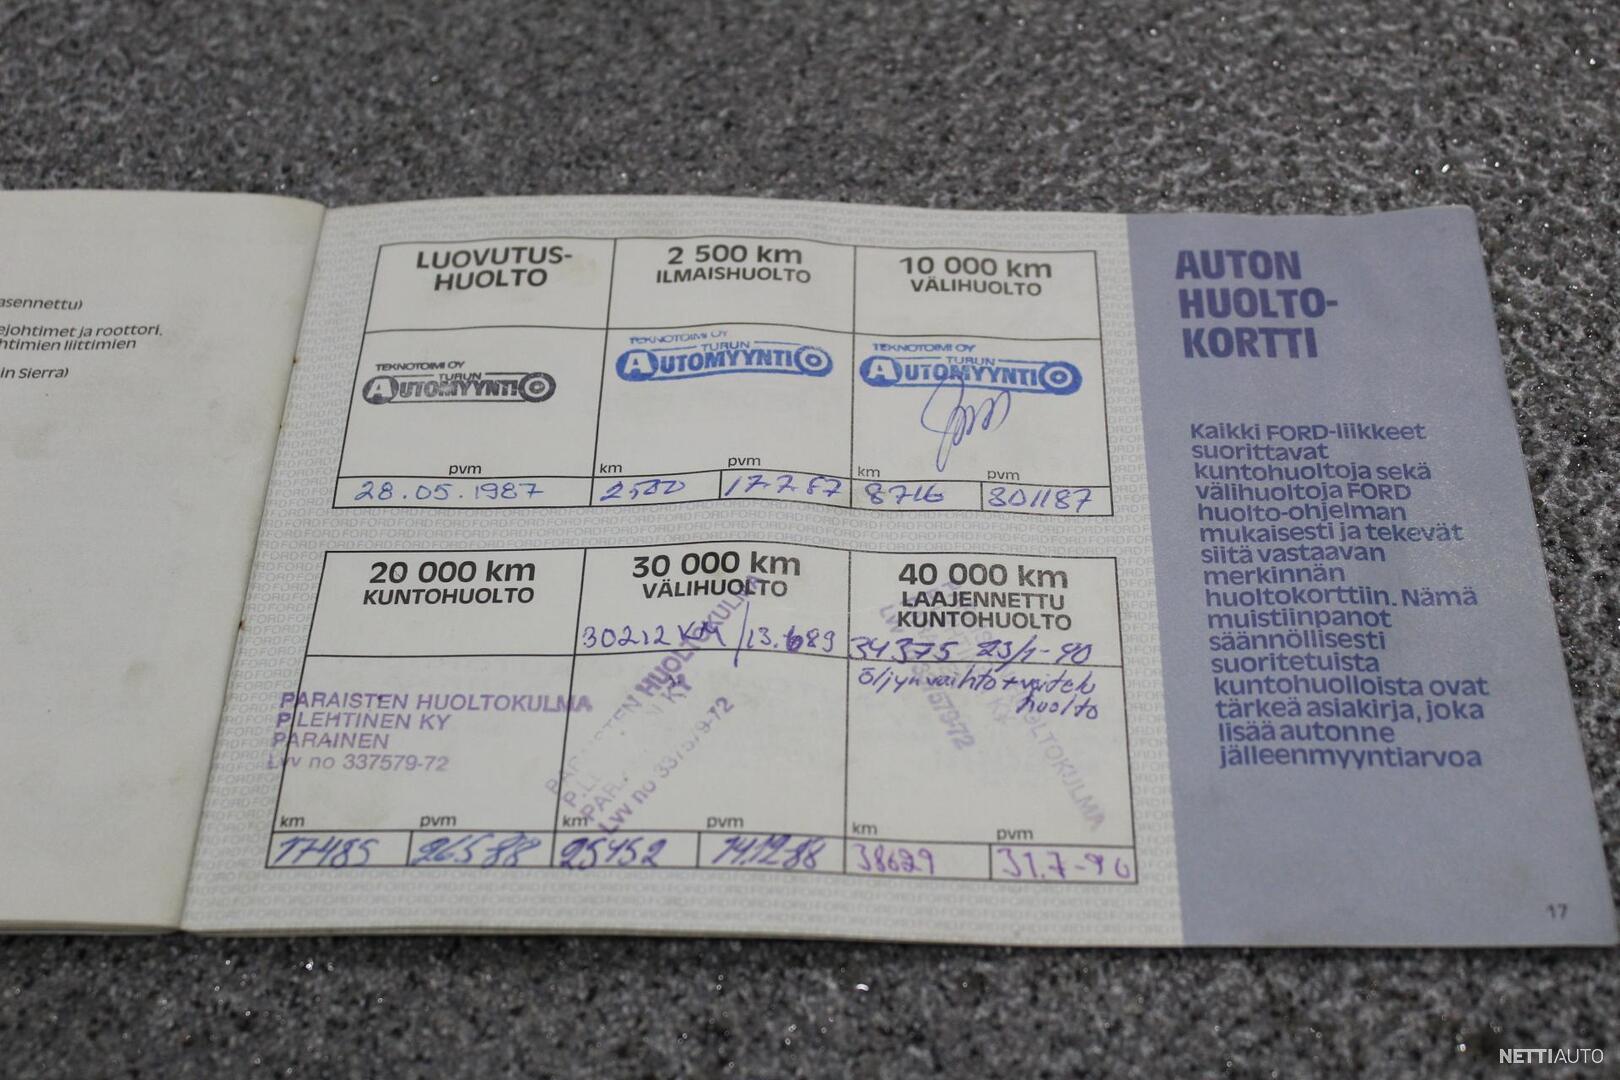 asennettu)
ejohtimet ja roottori.
htimien liittimien
in Sierra)
LUOVUTUS-
HUOLTO
TEKNOTOIMI OY
TURUN
AUTOMYYNTI
pvm
28.05.1987
2 500 km
ILMAISHUOLTO
TEKNOTOIMI OY
TURUN
AUTOMYYNTI
km
pvm
2500
17.7.87
10 000 km
VÄLIHUOLTO
TEKNOTOIMI OY
TURUN
AUTOMYYNTI
km
pvm
8716
801187
20 000 km
KUNTOHUOLTO
PARAISTEN HUOLTOKULMA
P.LEHTINEN KY
PARAINEN
Lvv no 337579-72
km
pvm
17485
26.5.88
30 000 km
VÄLIHUOLTO
30212 KM / 13.6 89
PARAISTEN HUOLTOKULMA
Lvv no 337579-72
km
pvm
25452
14.12.88
40 000 km
LAAJENNETTU
KUNTOHUOLTO
34375 23/1-90
öljynvaihto + voitelu
huolto
HUOLTOKULMA
km
pvm
38629
31.7-90
AUTON
HUOLTO-
KORTTI
Kaikki FORD-liikkeet
suorittavat
kuntohuoltoja sekä
välihuoltoja FORD
huolto-ohjelman
mukaisesti ja tekevät
siitä vastaavan
merkinnän
huoltokorttiin. Nämä
muistiinpanot
säännöllisesti
suoritetuista
kuntohuolloista ovat
tärkeä asiakirja, joka
lisää autonne
jälleenmyyntiarvoa
17
NETTIAUTO